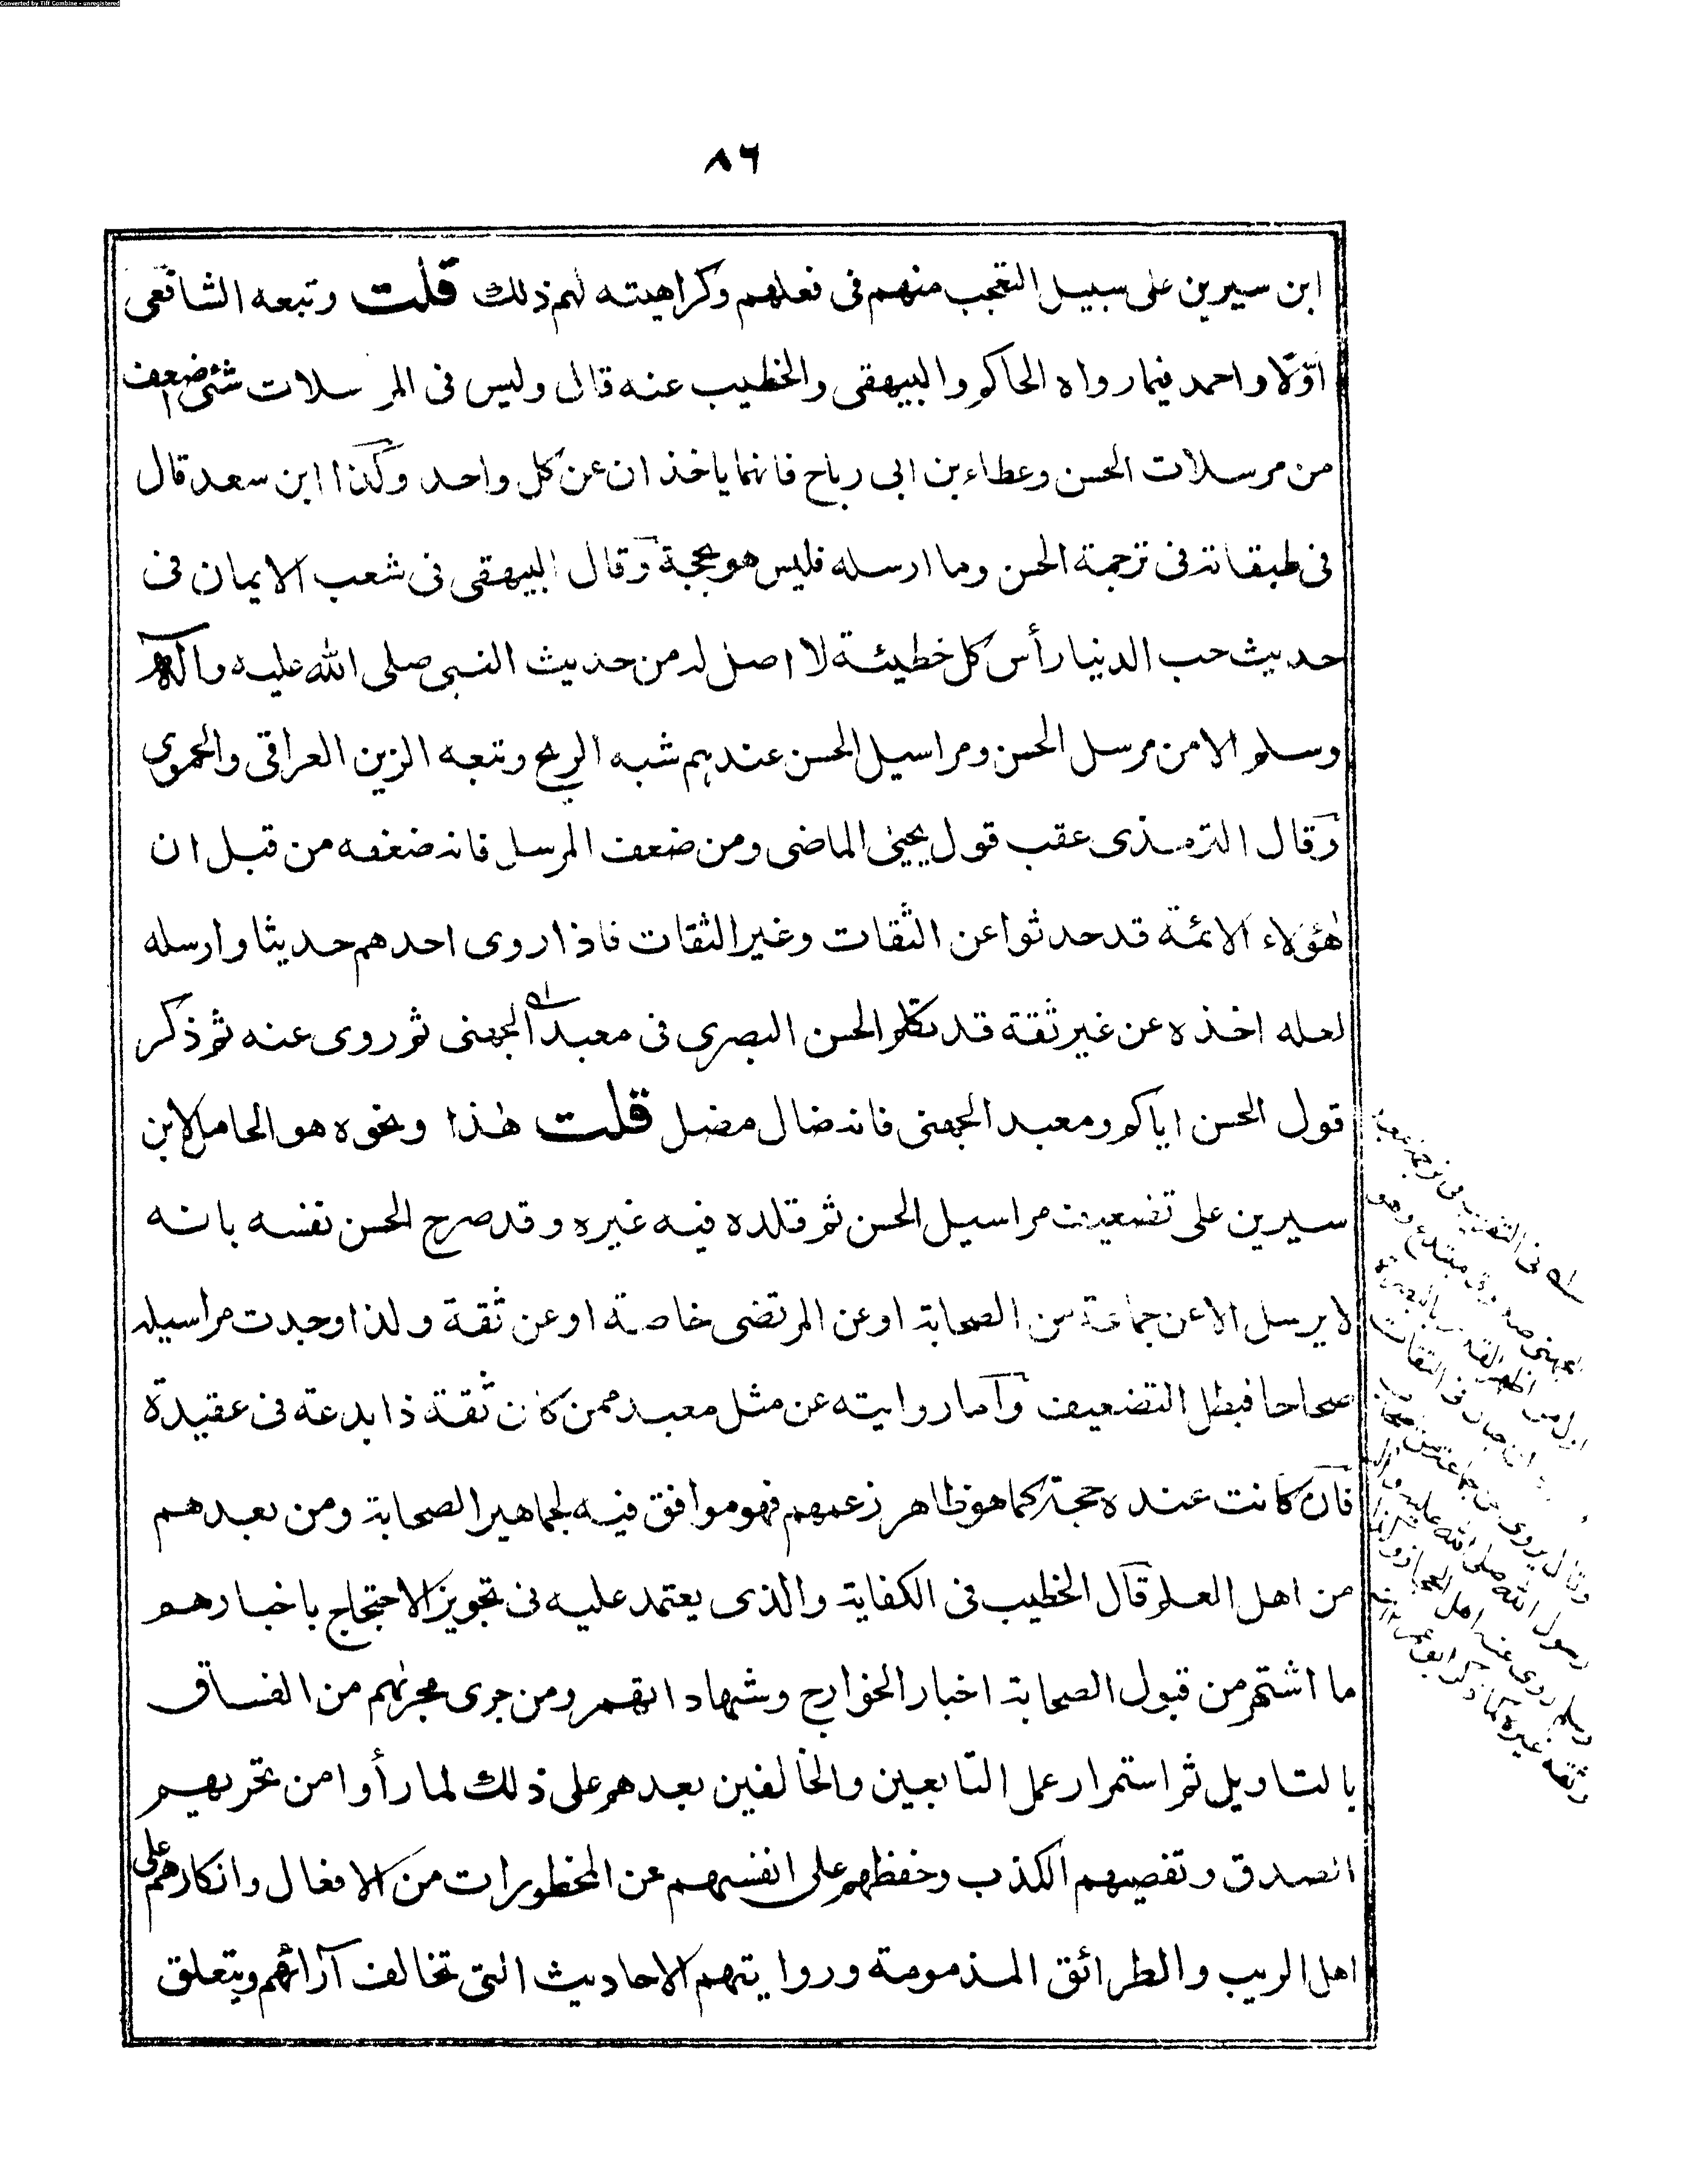 Converted by Tiff Combine - unregistered
٨٦
ابن سيرين على سبيل التعجب منهم فى فعلهم وكراهيته لهم ذلك قلت وتبعه الشافعى
اوّلا واحمد فيما رواه الحاكم والبيهقى والخطيب عنه قال وليس فى المرسلات شئ اضعف
من مرسلات الحسن وعطاء بن ابى رباح فانهما ياخذان عن كل واحد وكذا ابن سعد قال
فى طبقاته فى ترجمة الحسن وما ارسله فليس هو بحجة وقال البيهقى فى شعب الايمان فى
حديث حب الدنيا رأس كل خطيئة لا اصل له من حديث النبى صلى الله عليه وآله
وسلم الا من مرسل الحسن ومراسيل الحسن عندهم شبه الريح وتبعه الزين العراقى والحموى
وقال الترمذى عقب قول يحيىٰ الماضى ومن ضعف المرسل فانه ضعفه من قبل ان
هٰؤلاء الائمة قد حدثوا عن الثقات وغير الثقات فاذا روى احدهم حديثا وارسله
لعله اخذه عن غير ثقة قد تكلم الحسن البصرى فى معبد الجهنى ثم روى عنه ثم ذكر
قول الحسن اياكم ومعبد الجهنى فانه ضال مضل قلت هٰذا ونحوه هو الحامل لابن
سيرين على تضعيف مراسيل الحسن ثم قلده فيه غيره وقد صرح الحسن نفسه بانه
لا يرسل الا عن جماعة من الصحابة او عن المرتضى خاصة او عن ثقة ولذا وجدت مراسيله
صحاحا فبطل التضعيف وآما روايته عن مثل معبد ممن كان ثقة ذا بدعة فى عقيدة
فان كانت عنده حجة كما هو ظاهر زعمهم فهو موافق فيه لجماهير الصحابة ومن بعدهم
من اهل العلم قال الخطيب فى الكفاية والذى يعتمد عليه فى تجويز الاحتجاج باخبارهم
ما اشتهر من قبول الصحابة اخبار الخوارج وشهاداتهم ومن جرى مجرٰىهم من الفساق
بالتاويل ثم استمرار عمل التابعين والخالفين بعدهم على ذلك لما رأوا من تحريهم
الصدق وتفصيهم الكذب وحفظهم على انفسهم عن المحظورات من الافعال وانكارهم على
اهل الريب والطرائق المذمومة وروايتهم الاحاديث التى تخالف آرائهم ويتعلق
فى التقريب فى ترجمة معبد
الجهنى صدوق مبتدع وهو
اول من اظهر القدر بالبصرة
ابن حبان فى الثقات
وقال يروى عن جماعة من
رسول الله صلى الله عليه
وسلم روى عنه اهل الحجاز
وثقه غيره كما ذكر